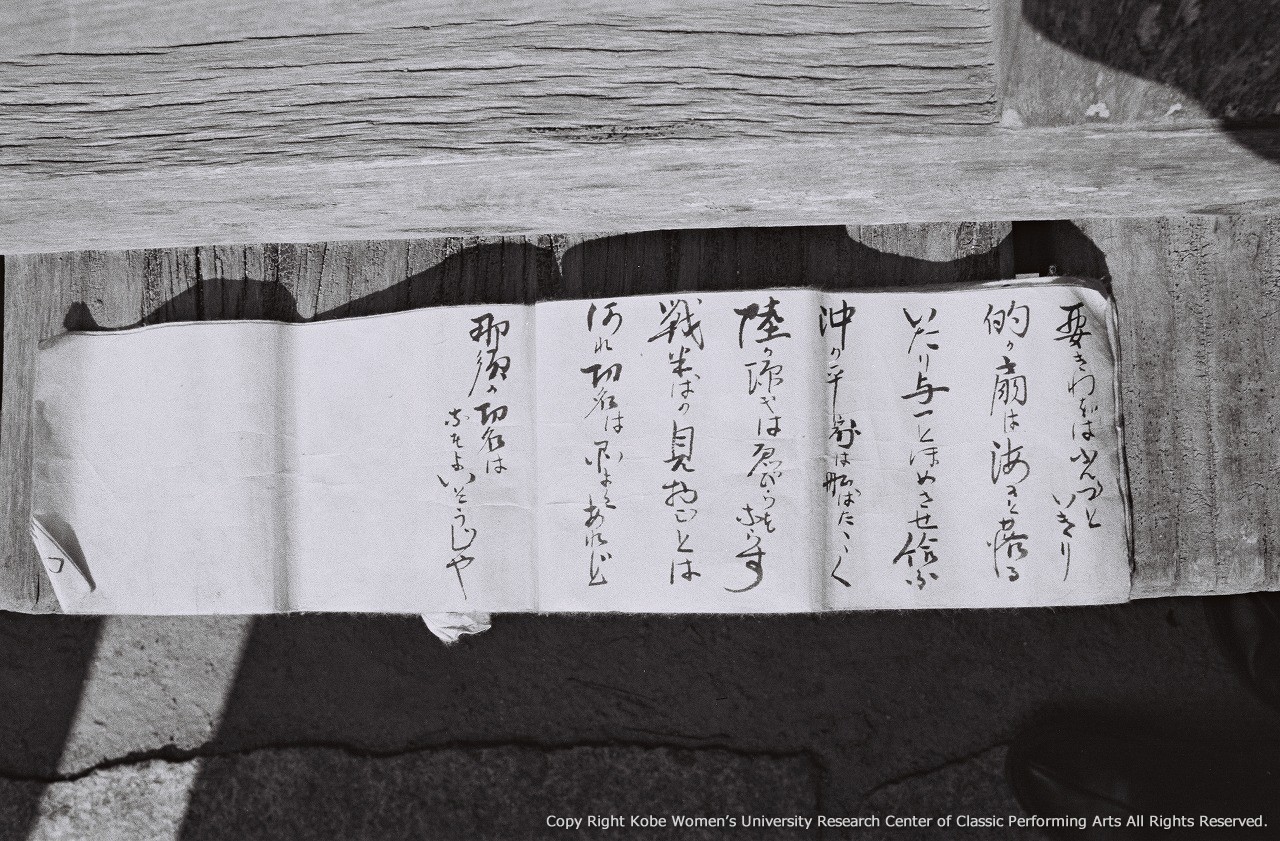 要きわをはふんつと
いきり
的の扇は海さと落る
いたり与一とほめさせ給ふ
沖の平家は船ばたゝく
陸の源氏はゑびらもならす
戦米ばの見物とは
何れ功名は あれど
那須の功名は
なをよいとうじや
Copy Right Kobe Women's University Research Center of Classic Performing Arts All Rights Reserved.